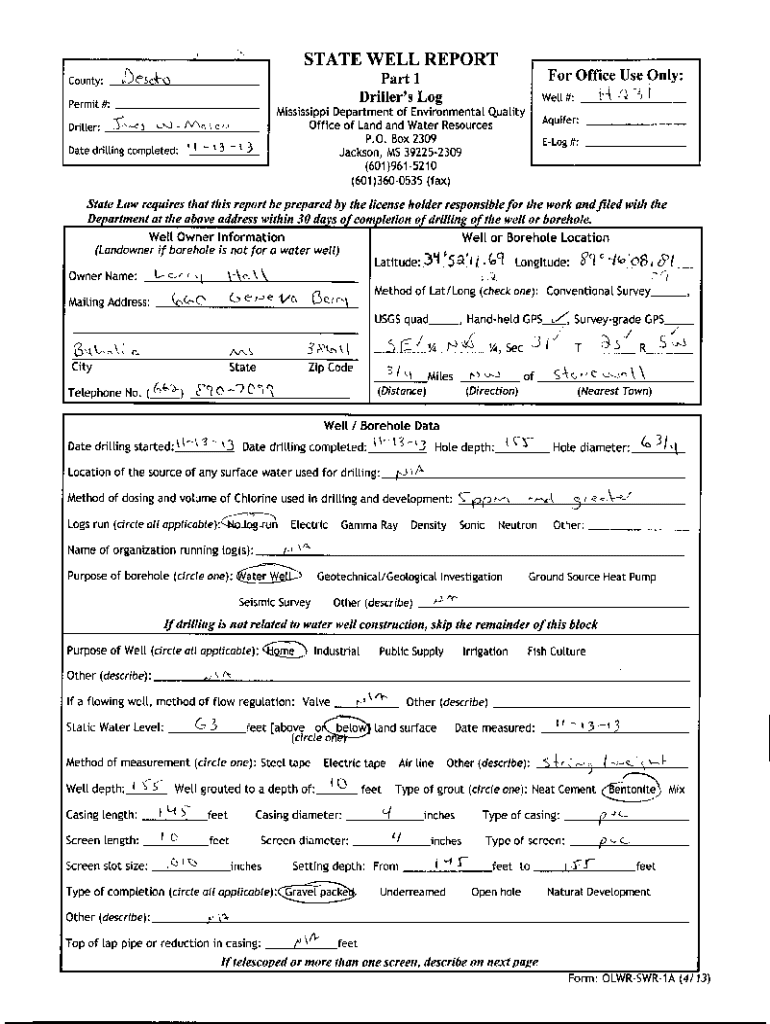 STATE WELL REPORT
Part 1
Driller's Log
Mississippi Department of Environmental Quality
Office of Land and Water Resources
P.O. Box 2309
Jackson, MS 39225-2309
(601)961-5210
(601)360-0535 (fax)
County: Desoto
Permit #:
Driller: James W. Mason
Date drilling completed: 11-13-13
For Office Use Only:
Well #: H231
Aquifer:
E-Log #:
State Law requires that this report be prepared by the license holder responsible for the work and filed with the
Department at the above address within 30 days of completion of drilling of the well or borehole.
Well Owner Information
(Landowner if borehole is not for a water well)
Owner Name: Larry Hall
Mailing Address: 660 Geneva Berry
Byhalia MS
City State Zip Code
Telephone No. (662) 890-7099
Well or Borehole Location
Latitude: 34°52'11.69 Longitude: 89°46'08.81
Method of Lat/Long (check one): Conventional Survey ,
USGS quad , Hand-held GPS ✓, Survey-grade GPS
SE ¼ NW ¼, Sec 31 T 2S R 5W
3/4 Miles NW of Stonewall
(Distance) (Direction) (Nearest Town)
Well / Borehole Data
Date drilling started: 11-13-13 Date drilling completed: 11-13-13 Hole depth: 155 Hole diameter: 6 3/4
Location of the source of any surface water used for drilling: N/A
Method of dosing and volume of Chlorine used in drilling and development: 5ppm and greater
Logs run (circle all applicable): No log run Electric Gamma Ray Density Sonic Neutron Other:
Name of organization running log(s): N/A
Purpose of borehole (circle one): Water Well Geotechnical/Geological Investigation Ground Source Heat Pump
Seismic Survey Other (describe) N/A
If drilling is not related to water well construction, skip the remainder of this block
Purpose of Well (circle all applicable): Home Industrial Public Supply Irrigation Fish Culture
Other (describe): N/A
If a flowing well, method of flow regulation: Valve N/A Other (describe)
Static Water Level: 63 feet [above or below] land surface Date measured: 11-13-13
(circle one)
Method of measurement (circle one): Steel tape Electric tape Air line Other (describe): String / weight
Well depth: 155 Well grouted to a depth of: 10 feet Type of grout (circle one): Neat Cement Bentonite Mix
Casing length: 145 feet Casing diameter: 4 inches Type of casing: PVC
Screen length: 10 feet Screen diameter: 4 inches Type of screen: PVC
Screen slot size: .010 inches Setting depth: From 145 feet to 155 feet
Type of completion (circle all applicable): Gravel packed Underreamed Open hole Natural Development
Other (describe): N/A
Top of lap pipe or reduction in casing: N/A feet
If telescoped or more than one screen, describe on next page
Form: OLWR-SWR-1A (4/13)